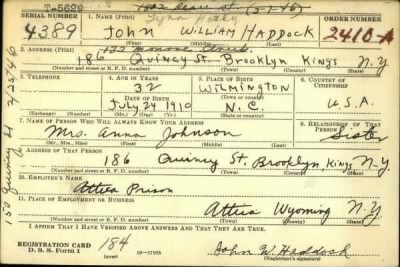 T-5629
SERIAL NUMBER 1. NAME (Print) ORDER NUMBER
4389 John William Haddock 2410-A
(First) (Middle) (Last)
2. ADDRESS (Print)
186 Quincy St. Brooklyn Kings N.Y.
(Number and street or R. F. D. number) (Town) (County) (State)
3. TELEPHONE 4. AGE IN YEARS 5. PLACE OF BIRTH 6. COUNTRY OF CITIZENSHIP
32 Wilmington
DATE OF BIRTH (Town or county)
July 24 1910 N.C. U.S.A.
(Exchange) (No.) (Mo.) (Day) (Yr.) (State or country)
7. NAME OF PERSON WHO WILL ALWAYS KNOW YOUR ADDRESS 8. RELATIONSHIP OF THAT PERSON
Mrs. Anna Johnson Sister
(Mr., Mrs., Miss) (First) (Middle) (Last)
9. ADDRESS OF THAT PERSON
186 Quincy St. Brooklyn, Kings N.Y.
(Number and street or R. F. D. number) (Town) (County) (State)
10. EMPLOYER'S NAME
Attica Prison
11. PLACE OF EMPLOYMENT OR BUSINESS
Attica Wyoming N.Y
(Number and street or R. F. D. number) (Town) (County) (State)
I AFFIRM THAT I HAVE VERIFIED ABOVE ANSWERS AND THAT THEY ARE TRUE.
REGISTRATION CARD 184
D. S. S. Form 1 (over) John W. Haddock
(Registrant's signature)
150 Quincy St 2/25/46